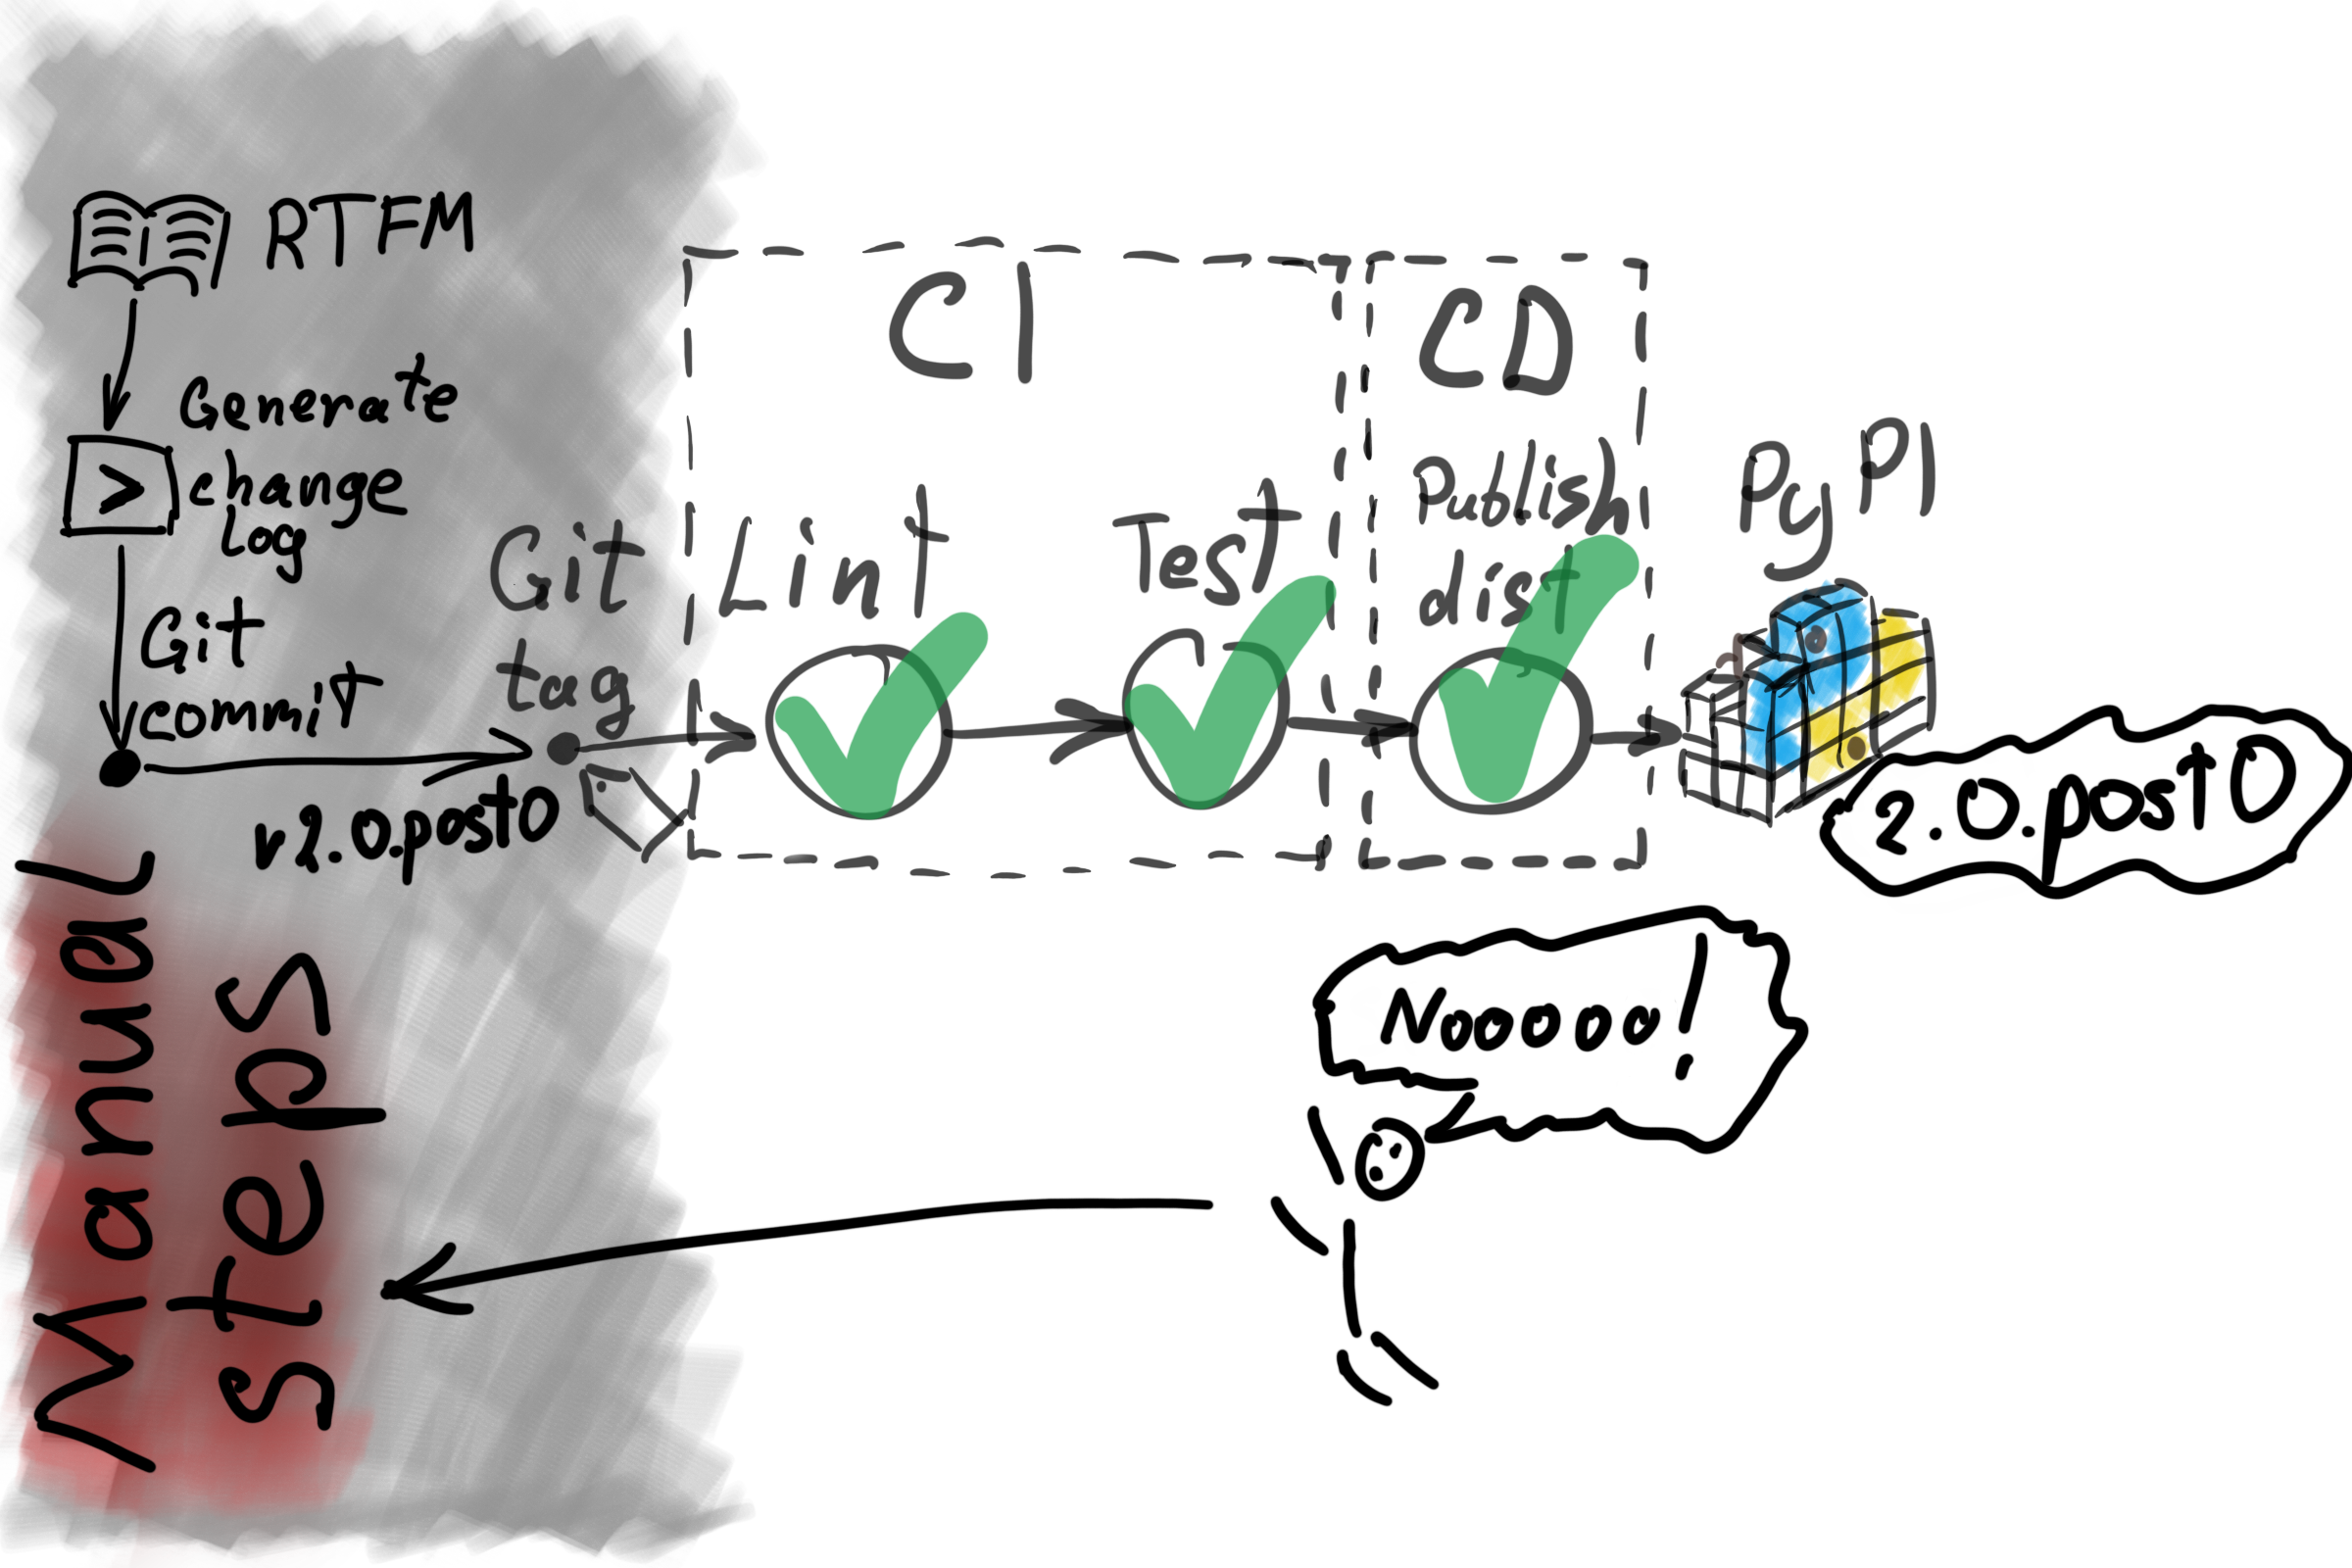 RTFM
Generate
change
log
Git
commit
v2.0.post0
Git
tag
CI
Lint
Test
CD
Publish
dist
PyPI
2.0.post0
Nooooo!
Manual
steps